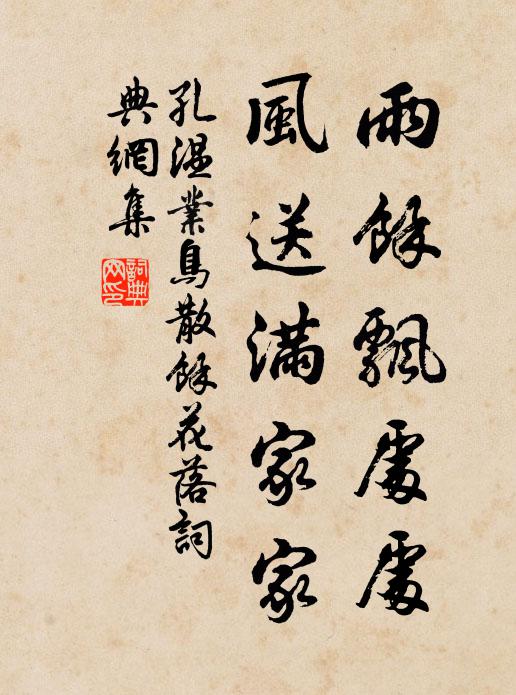 雨餘飄處處
風送滿家家
孔温業鳥散餘花落詞
典網集
詞典
网印